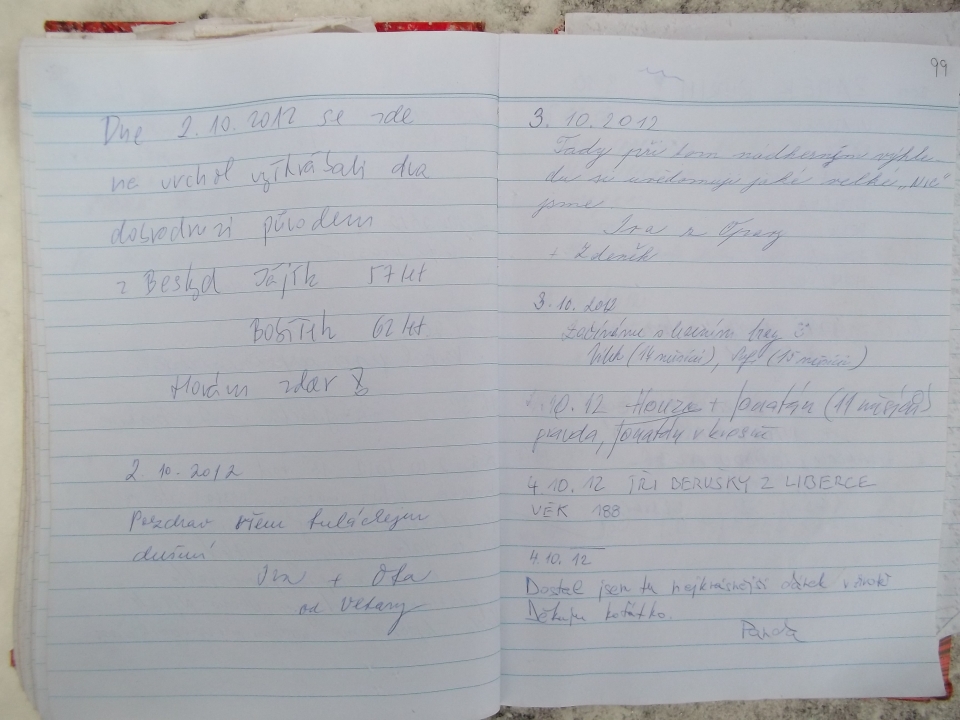 Dne 2.10.2012 se zde
na vrchol vyškrábali dva
dobrodruzi původem
z Beskyd 57 let
62 let
Horám zdar
2.10.2012
Pozdrav všem tuláckejm
duším
Iva + Ota
od
99
3.10.2012
Tady při tom nádherným výhle-
du si uvědomuju jaké velké „Nic"
jsme
Iva z Opavy
+ Zdeněk
3.10.2012
začínáme s
(14 měsíců), (15 měsíců)
.10.12 Honza + Jonatán (11 měsíců)
pravda, Jonatán v krosně
4.10.12 TŘI BERUŠKY Z LIBERCE
VĚK 188
4.10.12
Dostal jsem tu nejkrásnější dárek v životě
Děkuju koťátko.